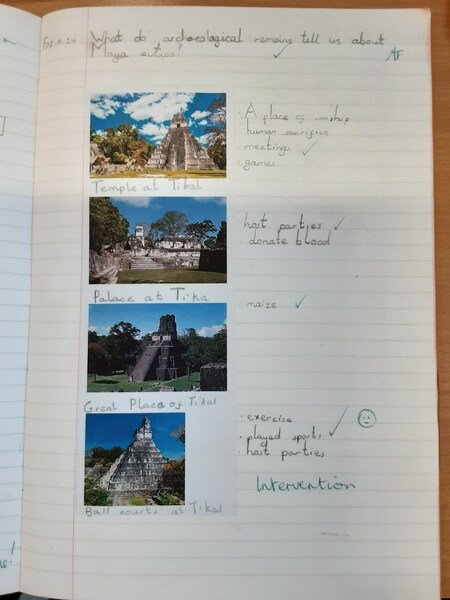 What do archaeological remains tell us about
Maya cities?
AF
A place of worship
human sacrifice
· meetings
· games
Temple at Tikal
· host parties
· donate blood
Palace at Tika
· maize
Great Plaza of Tikal
· exercise
· played sports
· host parties
Intervention
Ball courts at Tikal